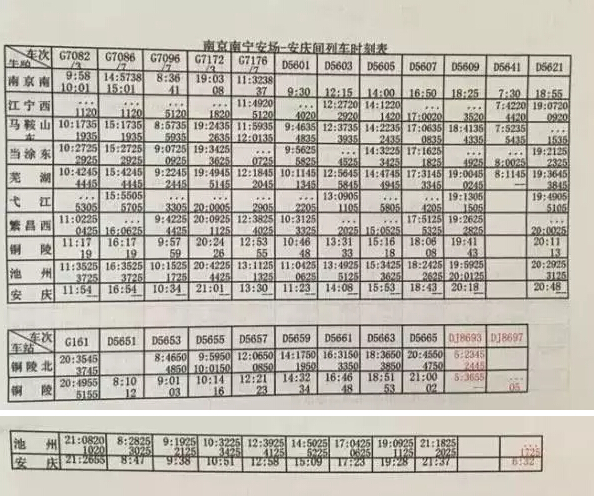 南京南宁安场-安庆间列车时刻表
车次 G7082/3 G7086/7 G7096/7 G7172/3 G7176/7 D5601 D5603 D5605 D5607 D5609 D5641 D5621
南京南 9:58 14:5738 8:36 19:03 11:3238
10:01 15:01 41 08 37 9:30 12:15 14:00 16:50 18:25 7:30 18:55
江宁西 ... ... ... ... 11:4920 ... 12:2720 14:1220 ... ... 7:4220 19:0720
1120 1120 5120 1820 5120 4020 2920 1420 17:0020 3520 4420 0920
马鞍山东 10:1735 15:1735 8:5735 19:2435 11:5935 9:4635 12:3735 14:2235 17:0635 18:4135 7:5235 ...
1935 1935 5935 2635 12:0135 4835 3935 2435 0835 4335 5435 1535
当涂东 10:2725 15:2725 9:0725 19:3425 ... 9:5625 ... 14:3225 17:1625 ... ... 19:2125
2925 2925 0925 3625 0725 5825 4525 3425 1825 4925 8:0025 2325
芜湖 10:4245 15:4245 9:2245 19:4945 12:1845 10:1145 12:5645 14:4745 17:3145 19:0045 8:1145 19:3645
4445 4445 2445 5145 2045 1345 5845 4945 3345 0245 — 3845
弋江 ... 15:5505 ... ... ... ... 13:0905 ... ... 19:1305 19:4905
5305 5705 3305 20:0005 2905 2205 1105 5805 4205 1505 5105
繁昌西 11:0225 ... 9:4225 20:0925 12:3825 10:3125 ... ... 17:5125 19:2625 ...
0425 16:0625 4425 1125 4025 3325 2025 15:0525 5325 2825 20:0025
铜陵 11:17 16:17 9:57 20:24 12:53 10:46 13:31 15:16 18:06 19:41 20:11
19 19 59 26 55 48 33 18 08 43 13
池州 11:3525 16:3525 10:1525 20:4225 13:1125 11:0425 13:4925 15:3425 18:2425 19:5925 20:2925
3725 3725 1725 4425 1325 0625 5125 3625 2625 20:0125 3125
安庆 11:54 16:54 10:34 21:01 13:30 11:23 14:08 15:53 18:43 20:18 20:48
车次 车站 G161 D5651 D5653 D5655 D5657 D5659 D5661 D5663 D5665 DJ8693 DJ8697
铜陵北 20:3545 8:4650 9:5950 12:0650 14:1750 16:3150 18:3650 20:4550 5:2345
3745 4850 10:0150 0850 1950 3350 3850 4750 2445
铜陵 20:4955 8:10 9:01 10:14 12:21 14:32 16:46 18:51 21:00 5:3655 ...
5155 12 03 16 23 34 48 53 02 — 05
池州 21:0820 8:2825 9:1925 10:3225 12:3925 14:5025 17:0425 19:0925 21:1825 ...
1020 3025 2125 3425 4125 5225 0625 1125 2025 1725
安庆 21:2655 8:47 9:38 10:51 12:58 15:09 17:23 19:28 21:37 6:32